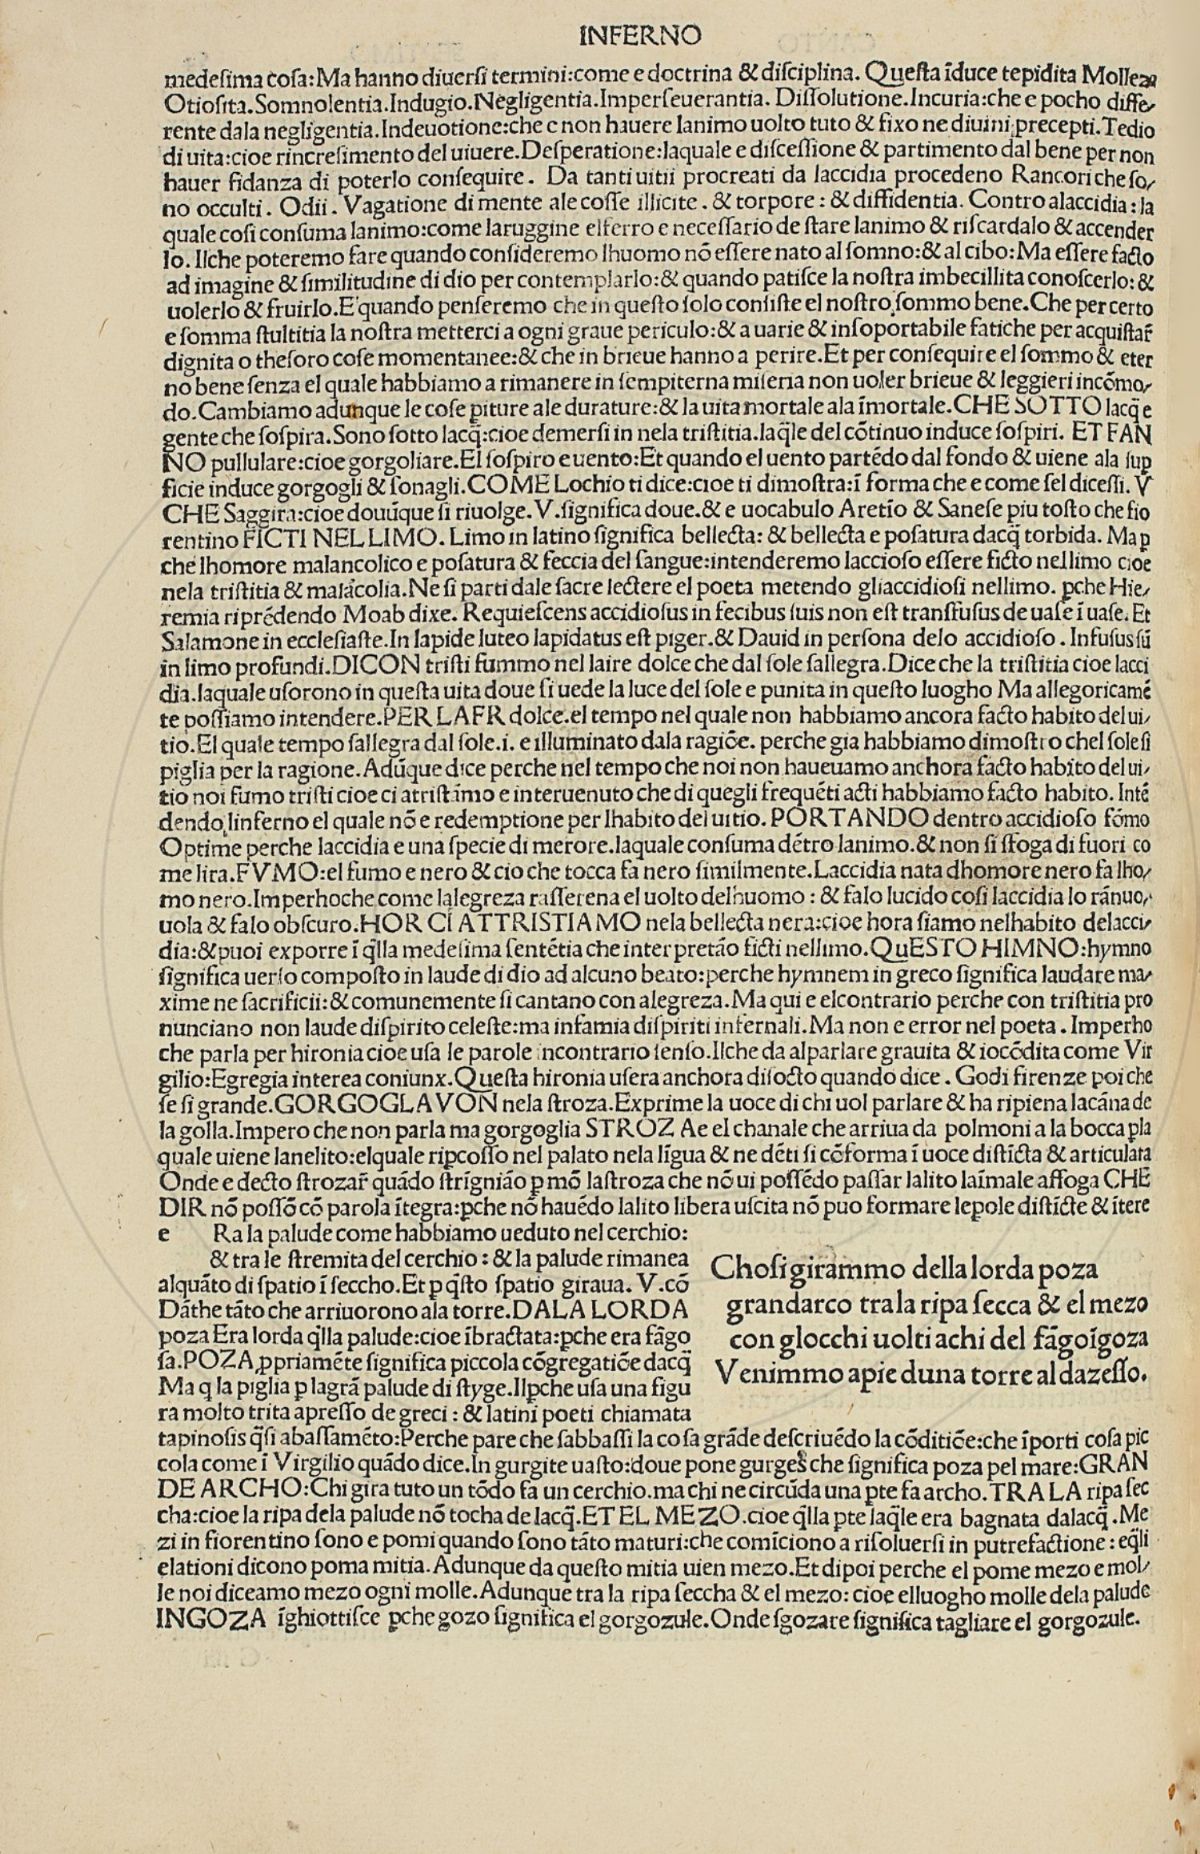 INFERNO
medesima cosa:Ma hanno diuersi termini:come e doctrina & disciplina. Questa īduce tepidita Molleza
Otiosita.Somnolentia.Indugio.Negligentia.Imperseuerantia. Dissolutione.Incuria:che e pocho diffe/
rente dala negligentia.Indeuotione:che e non hauere lanimo uolto tuto & fixo ne diuini precepti.Tedio
di uita:cioe rincresimento del uiuere.Desperatione:laquale e discessione & partimento dal bene per non
hauer fidanza di poterlo consequire. Da tanti uitii procreati da laccidia procedeno Rancori che so/
no occulti. Odii. Vagatione di mente ale cosse illicite. & torpore: & diffidentia. Contro alaccidia: la
quale cosi consuma lanimo:come laruggine elferro e necessario de stare lanimo & riscardalo & accender
lo. Ilche poteremo fare quando consideremo lhuomo nō essere nato al somno:& al cibo:Ma essere facto
ad imagine & similitudine di dio per contemplarlo:& quando patisce la nostra imbecillita conoscerlo:&
uolerlo & fruirlo.E quando penseremo che in questo solo consiste el nostro sommo bene.Che per certo
e somma stultitia la nostra metterci a ogni graue periculo:& a uarie & insoportabile fatiche per acquistar̄
dignita o thesoro cose momentanee:& che in brieue hanno a perire.Et per consequire el sommo & eter
no bene senza el quale habbiamo a rimanere in sempiterna miseria non uoler brieue & leggieri incōmo/
do.Cambiamo adunque le cose piture ale durature:& la uita mortale ala īmortale.CHE SOTTO lacq̄ e
gente che sospira.Sono sotto lacq̄:cioe demersi in nela tristitia.laq̄le del cōtinuo induce sospiri. ET FAN
NO pullulare:cioe gorgoliare.El sospiro e uento:Et quando el uento partēdo dal fondo & uiene ala sup
ficie induce gorgogli & sonagli.COME Lochio ti dice:cioe ti dimostra:ī forma che e come sel dicessi. V
CHE Saggira:cioe douūque si riuolge. V.significa doue.& e uocabulo Aretīo & Sanese piu tosto che fio
rentino FICTI NEL LIMO. Limo in latino significa bellecta: & bellecta e posatura dacq̄ torbida. Ma p
che lhomore malancolico e posatura & feccia del sangue:intenderemo laccioso essere ficto nel limo cioe
nela tristitia & malācolia.Ne si parti dale sacre lectere el poeta metendo gliaccidiosi nellimo. pche Hie/
remia riprēdendo Moab dixe. Requiescens accidiosus in fecibus suis non est transfusus de uase ī uase. Et
Salamone in ecclesiaste.In lapide luteo lapidatus est piger.& Dauid in persona delo accidioso. Infusus sū
in limo profundi.DICON tristi fummo nel laire dolce che dal sole sallegra.Dice che la tristitia cioe lacci
dia.laquale usorono in questa uita doue si uede la luce del sole e punita in questo luogho Ma allegoricamē
te possiamo intendere.PER LAER dolce.el tempo nel quale non habbiamo ancora facto habito del ui/
tio.El quale tempo sallegra dal sole.i. e illuminato dala ragiōe. perche gia habbiamo dimostro chel sole si
piglia per la ragione.Adūque dice perche nel tempo che noi non haueuamo anchora facto habito del ui/
tio noi fumo tristi cioe ci atristāmo e interuenuto che di quegli frequēti acti habbiamo facto habito. Intē
dendo linferno el quale nō e redemptione per lhabito del uitio. PORTANDO dentro accidioso fōmo
Optime perche laccidia e una specie di merore.laquale consuma dētro lanimo.& non si sfoga di fuori co
me lira.FVMO:el fumo e nero & cio che tocca fa nero similmente.Laccidia nata dhomore nero fa lho/
mo nero.Imperhoche come lalegreza rasserena el uolto delhuomo : & falo lucido cosi laccidia lo rānuo/
uola & falo obscuro.HOR CI ATTRISTIAMO nela bellecta nera:cioe hora siamo nelhabito delacci/
dia:& puoi exporre ī q̄lla medesima sentētia che interpretāo ficti nellimo.QuESTO HIMNO:hymno
significa uerso composto in laude di dio ad alcuno beato:perche hymnem in greco significa laudare ma/
xime ne sacrificii:& comunemente si cantano con alegreza.Ma qui e elcontrario perche con tristitia pro
nunciano non laude dispirito celeste:ma infamia dispiriti infernali.Ma non e error nel poeta. Imperho
che parla per hironia cioe usa le parole incontrario senso.Ilche da alparlare grauita & iocōdita come Vir
gilio:Egregia interea coniunx.Questa hironia usera anchora disocto quando dice. Godi firenze poi che
se si grande.GORGOGLAVON nela stroza.Exprime la uoce di chi uol parlare & ha ripiena lacāna de
la golla.Impero che non parla ma gorgoglia STROZ Ae el chanale che arriua da polmoni a la bocca pla
quale uiene lanelito:elquale ripcosso nel palato nela līgua & ne dēti si cōforma ī uoce distīcta & articulata
Onde e decto strozar̄ quādo strīgniāo p mō lastroza che nō ui possēdo passar lalito laīmale affoga CHE
DIR nō possō cō parola ītegra:pche nō hauēdo lalito libera uscita nō puo formare lepole distīcte & ītere
e Ra la palude come habbiamo ueduto nel cerchio:
& tra le stremita del cerchio : & la palude rimanea
alquāto di spatio ī seccho.Et p q̄sto spatio giraua. V.cō
Dāthe tāto che arriuorono ala torre.DALA LORDA
poza Era lorda q̄lla palude:cioe ībractata:pche era fāgo
sa.POZA ppriamēte significa piccola cōgregatiōe dacq̄
Ma q la piglia p lagrā palude di styge.Ilpche usa una figu
ra molto trita apresso de greci : & latini poeti chiamata
Chosi girammo della lorda poza
grandarco tra la ripa secca & el mezo
con glocchi uolti achi del fāgo īgoza
Venimmo apie duna torre al dazesso.
tapinosis q̄si abassamēto:Perche pare che sabbassi la cosa grāde descriuēdo la cōditiōe:che īporti cosa pic
cola come ī Virgilio quādo dice.In gurgite uasto:doue pone gurges che significa poza pel mare:GRAN
DE ARCHO:Chi gira tuto un tōdo fa un cerchio.ma chi ne circūda una pte fa archo.TRA LA ripa sec
cha:cioe la ripa dela palude nō tocha de lacq̄.ET EL MEZO.cioe q̄lla pte laq̄le era bagnata dalacq̄ .Me
zi in fiorentino sono e pomi quando sono tāto maturi:che comīciono a risoluersi in putrefactione : eq̄li
elationi dicono poma mitia.Adunque da questo mitia uien mezo.Et dipoi perche el pome mezo e mol/
le noi diceamo mezo ogni molle.Adunque tra la ripa seccha & el mezo: cioe elluogho molle dela palude
INGOZA īghiottisce pche gozo significa el gorgozule.Onde sgozare significa tagliare el gorgozule.